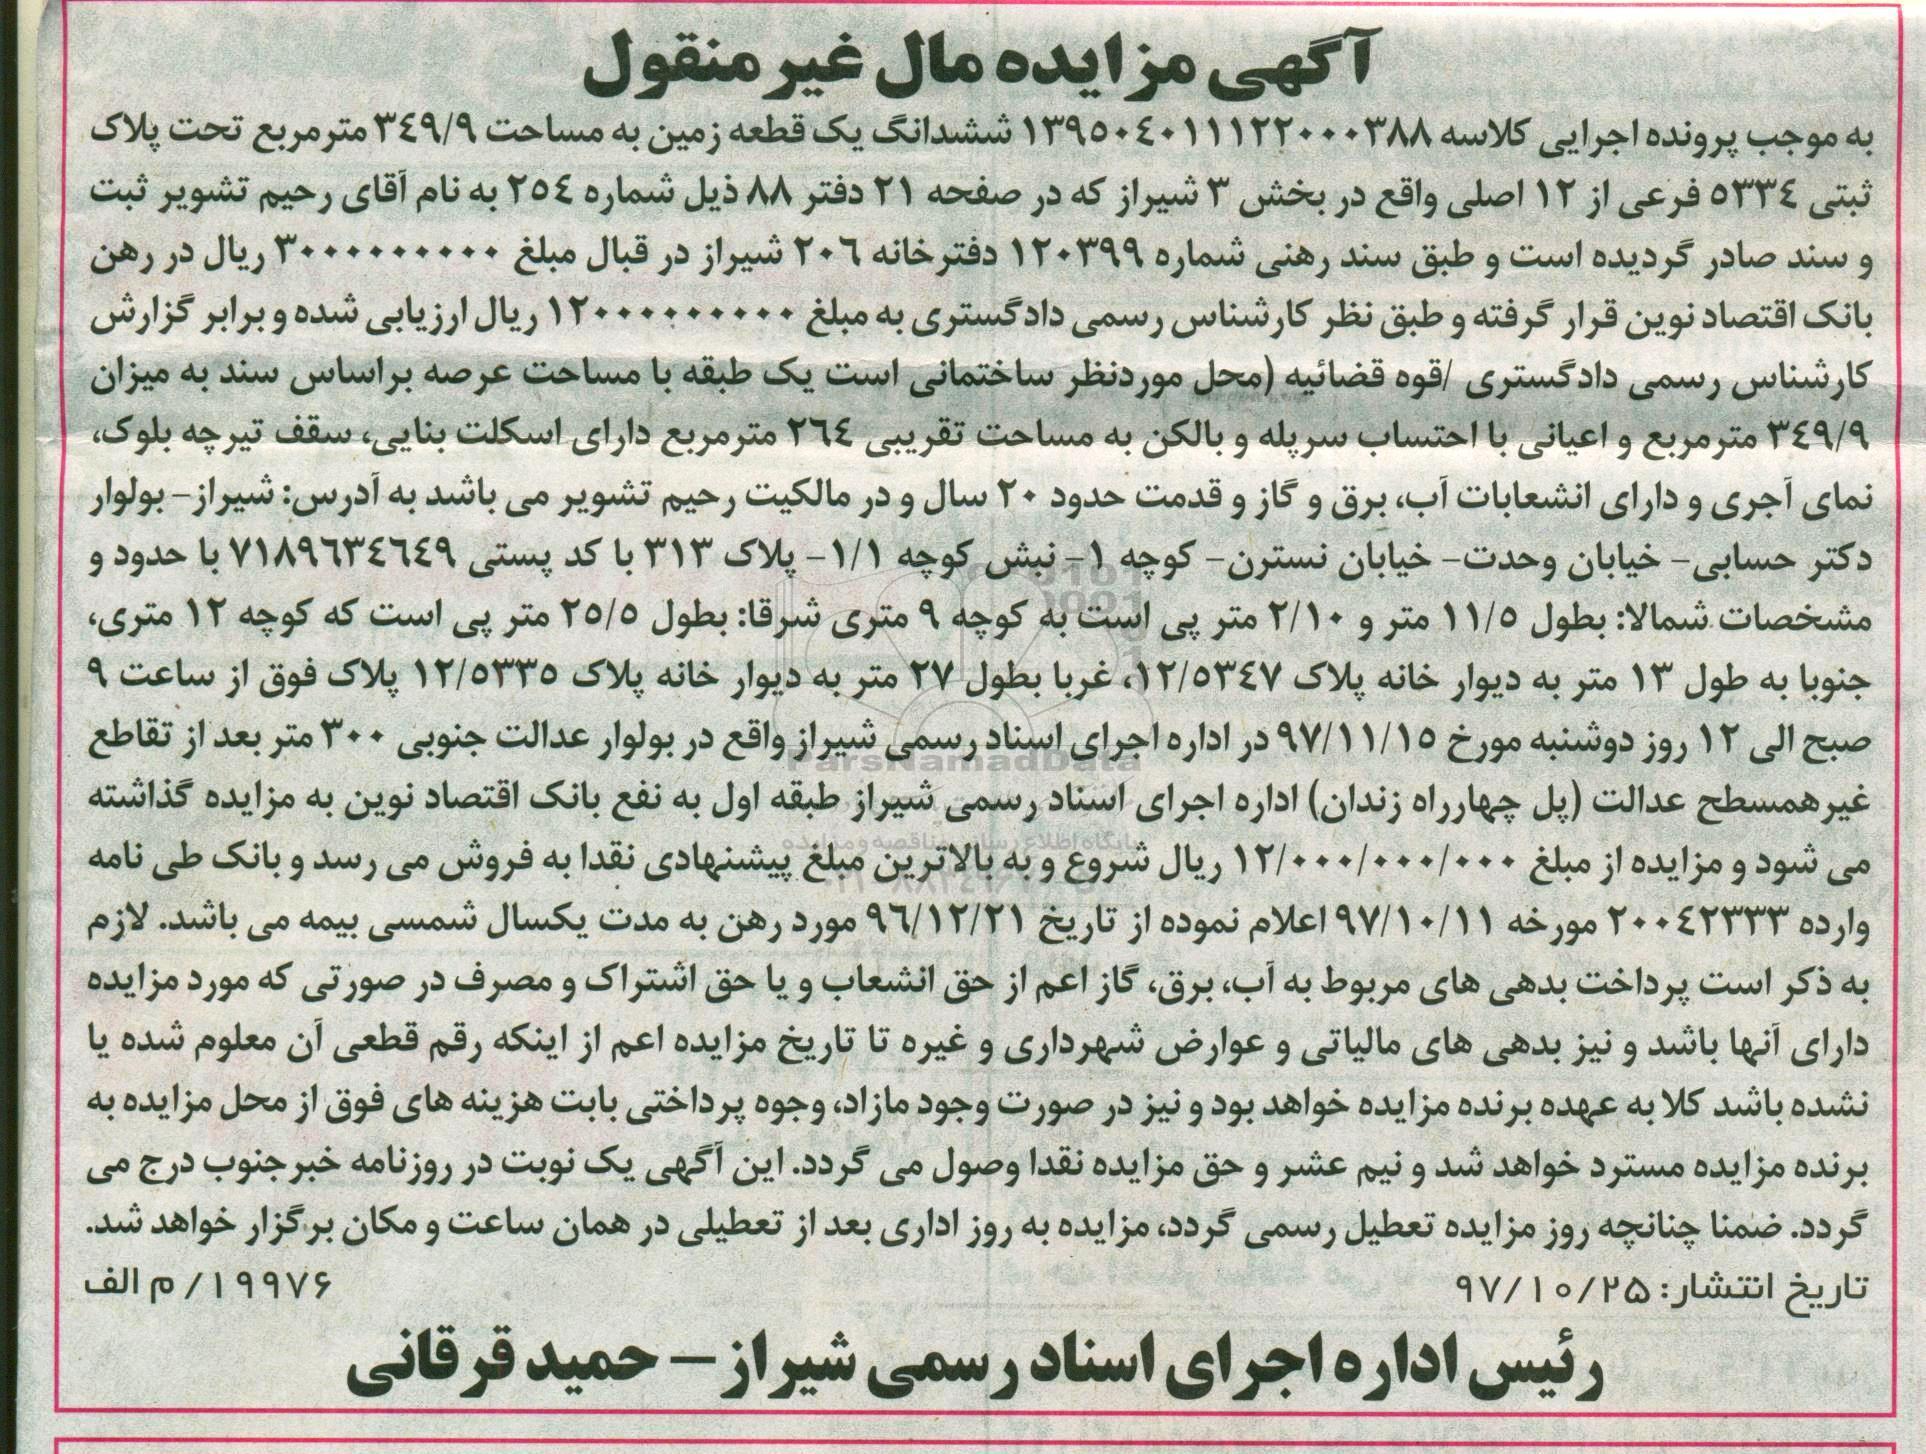 آگهی مزایده مال غیر منقول
به موجب پرونده اجرایی کلاسه ۱۳۹۵۰۴۰۱۱۱۲۲۰۰۰۳۸۸ ششدانگ یک قطعه زمین به مساحت ۳۴۹/۹ مترمربع تحت پلاک
ثبتی ۵۳۳۴ فرعی از ۱۲ اصلی واقع در بخش ۳ شیراز که در صفحه ۲۱ دفتر ۸۸ ذیل شماره ۲۵۴ به نام آقای رحیم تشویر ثبت
و سند صادر گردیده است و طبق سند رهنی شماره ۱۲۰۳۹۹ دفترخانه ۲۰۶ شیراز در قبال مبلغ ۳۰۰۰۰۰۰۰۰۰ ریال در رهن
بانک اقتصاد نوین قرار گرفته و طبق نظر کارشناس رسمی دادگستری به مبلغ ۱۲۰۰۰۰۰۰۰۰۰ ریال ارزیابی شده و برابر گزارش
کارشناس رسمی دادگستری /قوه قضائیه (محل موردنظر ساختمانی است یک طبقه با مساحت عرصه براساس سند به میزان
۳۴۹/۹ مترمربع و اعیانی با احتساب سرپله و بالکن به مساحت تقریبی ۲۶۴ مترمربع دارای اسکلت بنایی، سقف تیرچه بلوک،
نمای آجری و دارای انشعابات آب، برق و گاز و قدمت حدود ۲۰ سال و در مالکیت رحیم تشویر می باشد به آدرس: شیراز- بولوار
دکتر حسابی- خیابان وحدت- خیابان نسترن- کوچه ۱- نبش کوچه ۱/۱- پلاک ۳۱۳ با کد پستی ۷۱۸۹۶۳۴۶۴۹ با حدود و
مشخصات شمالا: بطول ۱۱/۵ متر و ۲/۱۰ متر پی است به کوچه ۹ متری شرقا: بطول ۲۵/۵ متر پی است که کوچه ۱۲ متری،
جنوبا به طول ۱۳ متر به دیوار خانه پلاک ۱۲/۵۳۴۷، غربا بطول ۲۷ متر به دیوار خانه پلاک ۱۲/۵۳۳۵ پلاک فوق از ساعت ۹
صبح الی ۱۲ روز دوشنبه مورخ ۹۷/۱۱/۱۵ در اداره اجرای اسناد رسمی شیراز واقع در بولوار عدالت جنوبی ۳۰۰ متر بعد از تقاطع
غیرهمسطح عدالت (پل چهارراه زندان) اداره اجرای اسناد رسمی شیراز طبقه اول به نفع بانک اقتصاد نوین به مزایده گذاشته
می شود و مزایده از مبلغ ۱۲/۰۰۰/۰۰۰/۰۰۰ ریال شروع و به بالاترین مبلغ پیشنهادی نقدا به فروش می رسد و بانک طی نامه
وارده ۲۰۰۴۲۳۳۳ مورخه ۹۷/۱۰/۱۱ اعلام نموده از تاریخ ۹۶/۱۲/۲۱ مورد رهن به مدت یکسال شمسی بیمه می باشد. لازم
به ذکر است پرداخت بدهی های مربوط به آب، برق، گاز اعم از حق انشعاب و یا حق اشتراک و مصرف در صورتی که مورد مزایده
دارای آنها باشد و نیز بدهی های مالیاتی و عوارض شهرداری و غیره تا تاریخ مزایده اعم از اینکه رقم قطعی آن معلوم شده یا
نشده باشد کلا به عهده برنده مزایده خواهد بود و نیز در صورت وجود مازاد، وجوه پرداختی بابت هزینه های فوق از محل مزایده به
برنده مزایده مسترد خواهد شد و نیم عشر و حق مزایده نقدا وصول می گردد. این آگهی یک نوبت در روزنامه خبرجنوب درج می
گردد. ضمنا چنانچه روز مزایده تعطیل رسمی گردد، مزایده به روز اداری بعد از تعطیلی در همان ساعت و مکان برگزار خواهد شد.
تاریخ انتشار: ۹۷/۱۰/۲۵ ۱۹۹۷۶/ م الف
رئیس اداره اجرای اسناد رسمی شیراز – حمید قرقانی
ParsNamadData
پایگاه اطلاع رسانی مناقصه و مزایده